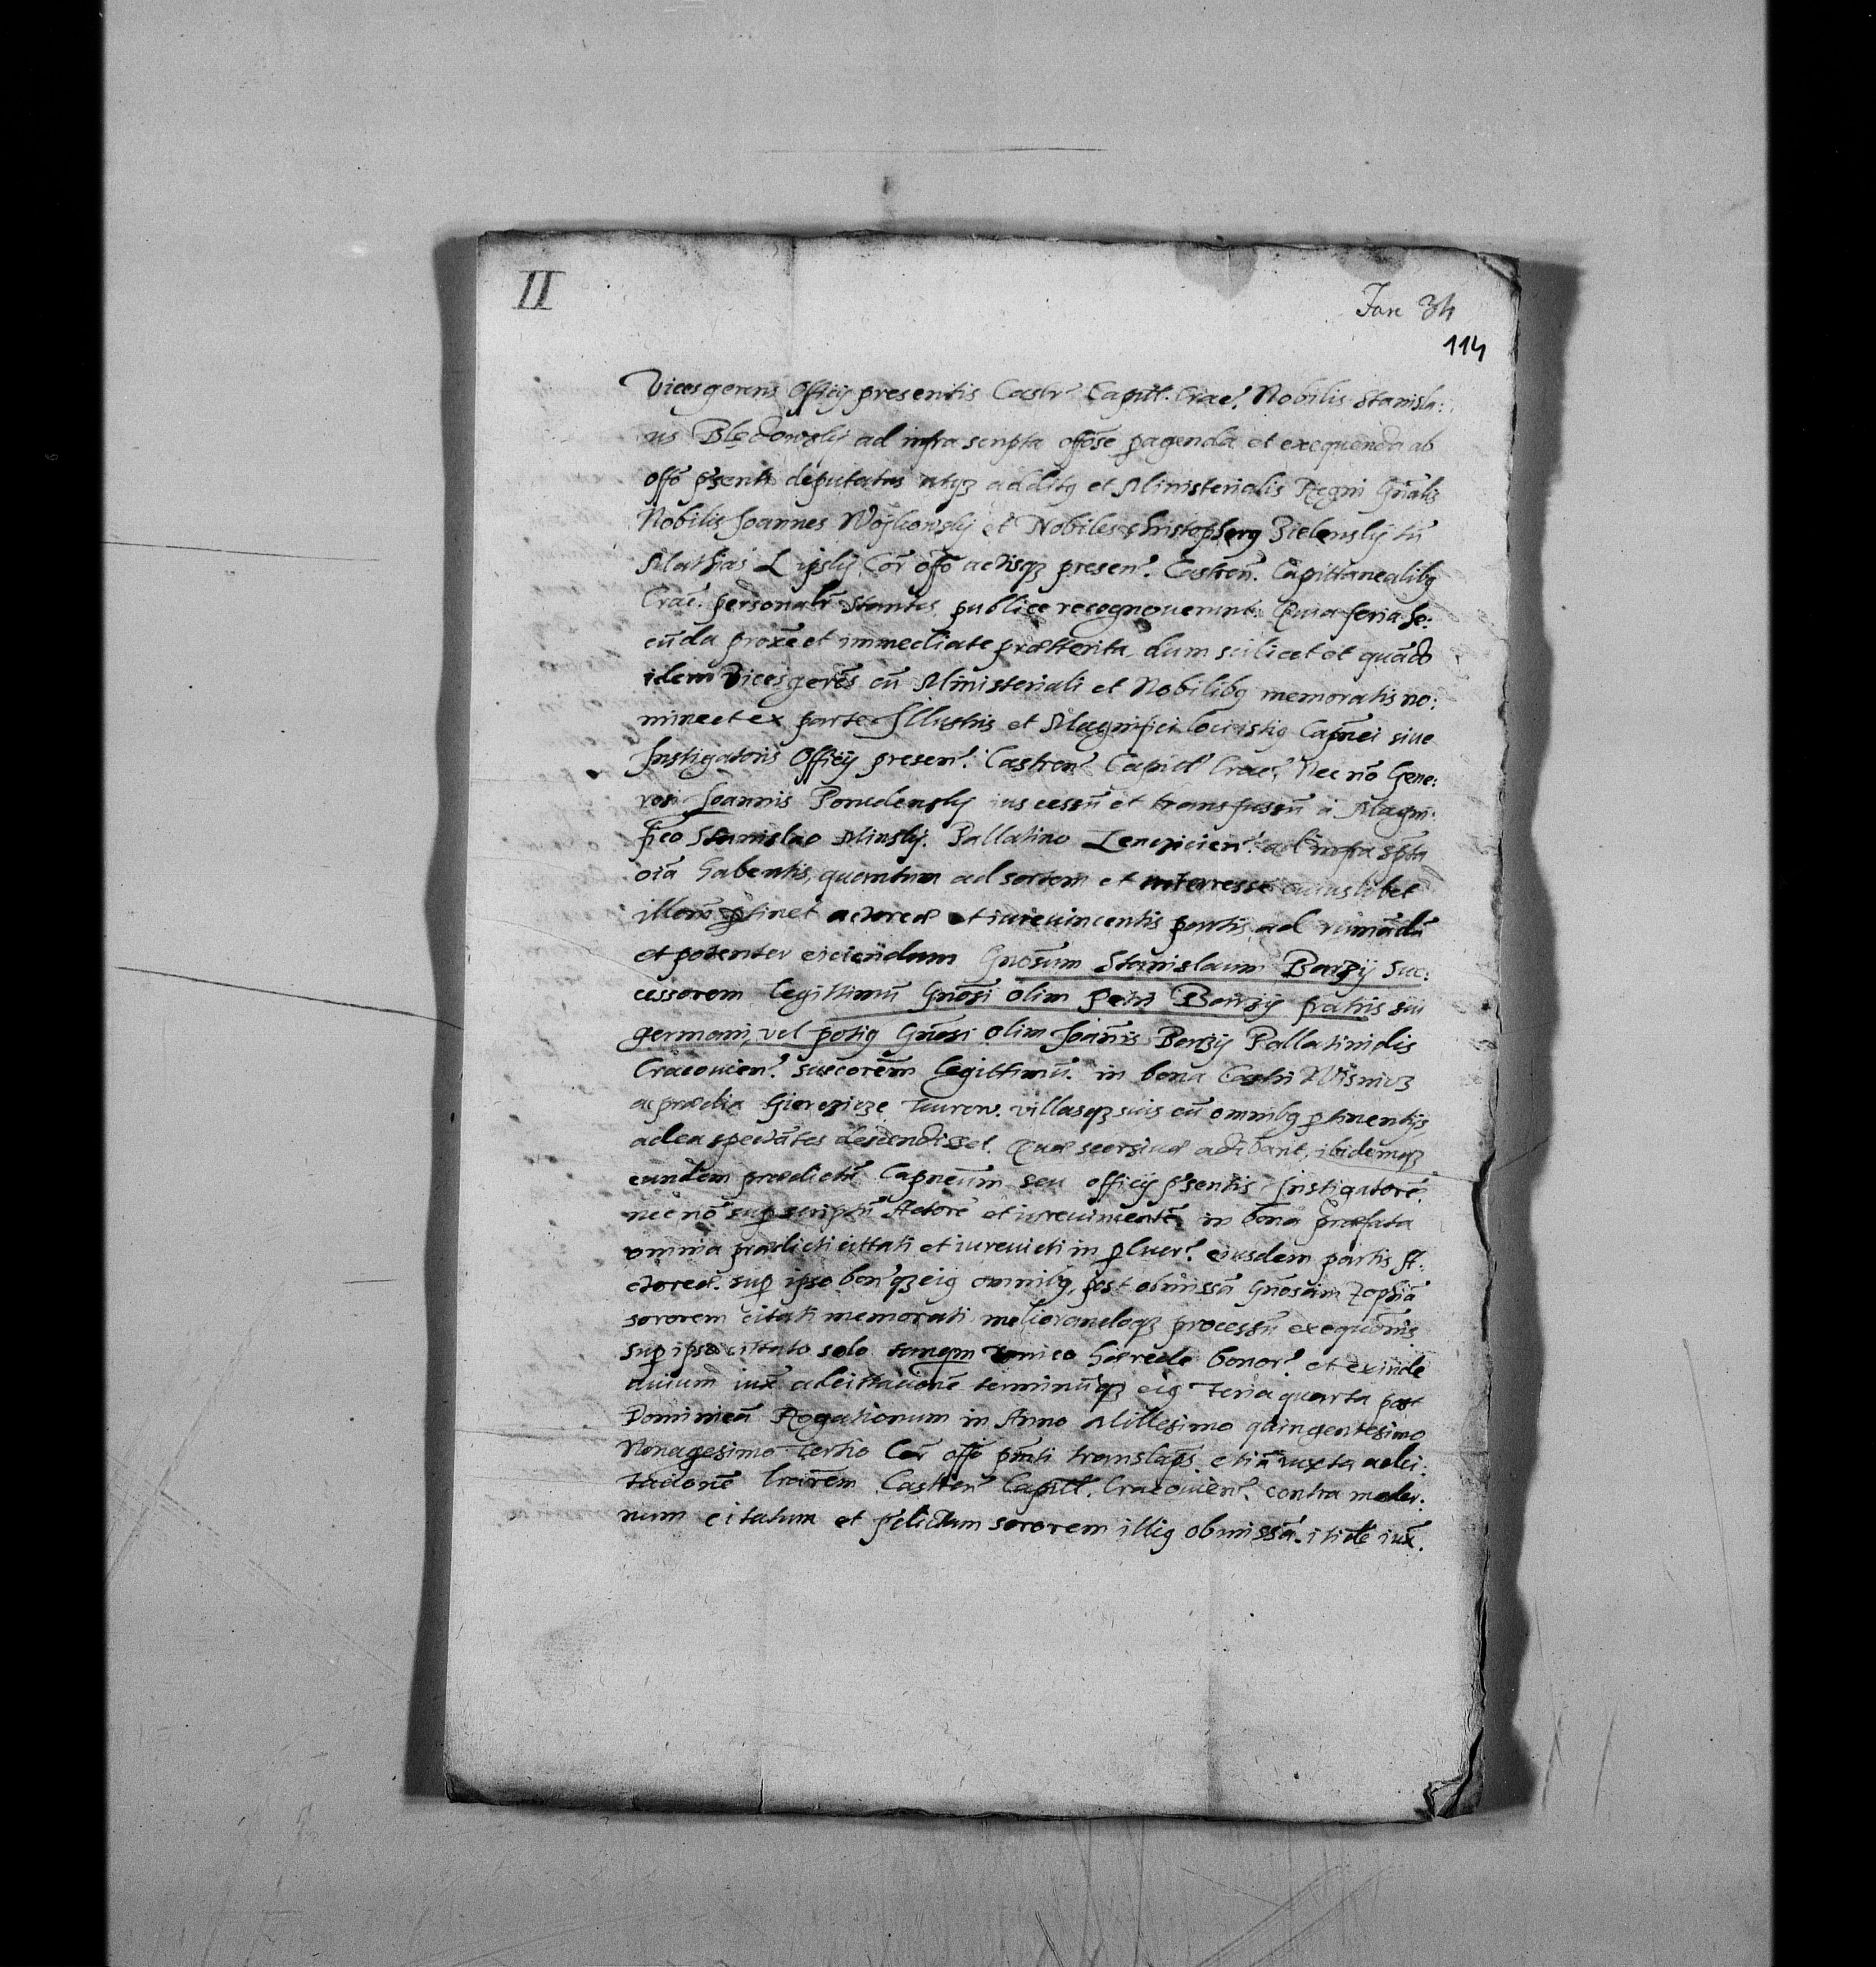 II
Fasc 34
114
Vicesgerens Officij presentis Castr? Capitl. Crac?. Nobilis Stanisla:
us Błędowsky ad infra scripta offose pagenda et exequenda ab
offo psenti deputatus atqz additq et Ministerialis Regni Gnalis
Nobilis Joannes Woykowsky et Nobiles Christopherq Zielensky tu
Mathias Lipsky, Cor offo actisqz presen?. Castren. Capittanealibq
Crac. personalr stantes publice recognouerunt. Quia feria Se:
cuda proxe et immediate præterita dum scilicet et quado
idem Vicesgeres cu Ministeriali et Nobilibq memoratis no:
mine et ex parte Jllustris et Magnifici loci istiq Capnei siue
Jnstigatoris Officij presen?. Castren? Capitl? Crac?. Nec no Gene:
rosi Joannis Porudensky ius cessu et transfusu a Magni:
fico Stanislao Minsky. Pallatino Lencicien?. ad infra spta
oia habentis, quantum ad sortem et interresse cuiuslibet
illoru ptinet actoreæ et iureuincentis partis ad rumadu
et potenter eiciendum Gnosum Stanislaum Barzy Suc:
cessorem legittimu Gnosi olim Petri Barzy fratris sui
germani, vel potiq Gnosi olim Joanis Barzy Pallatinidis
Cracouien?. succorem legittimu. in bona Castri Wisnicz
ac prædia Gierczicze Tururow. villasqz suis cu omnibq ptinentijs
ad ea spectates descendisset. Quæ seorsiue adibant, ibidemqz
eundem prædictu Capneum seu officij psentis Jnstigatore.
nec no supscriptu Actore et iureuincente in bona præfata
omnia prædicti cittati et iureuicti in pluer?. eiusdem partis A:
ctoreæ. sup ipso bon?qz eiq omnibq, post obmissa Gnosam Zophia
sororem citati memorati meliorandoqz processu exequonis
sup ipso cittato solo tamqm vnico hærede bonor? et exinde
auium iux adcittatione terminuqz eiq feria quarta post
Dominica Rogationum in Anno Millesimo quingentesimo
Nonagesimo Tertio Cor offo pnti translaps. etia iuxta adci:
tatione lrarem Castren? Capitl. Cracouien?. contra moder:
num citatum et pdictam sororem illiq obmissa. itide iux.